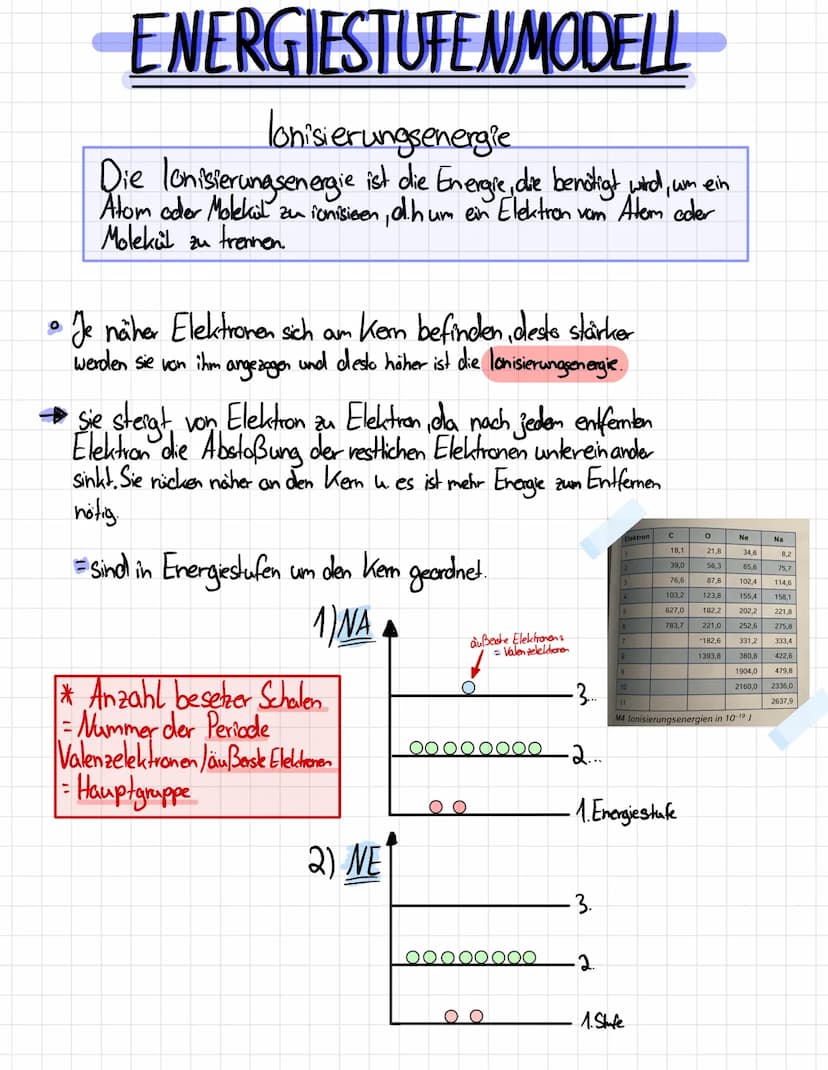 ENERGIESTUFENMODELL
Ionisierungsenergie
Die Ionisierungsenergie ist die Energie, die benötigt wird, um ein
Atom oder Molekül zu ionisieen, d.h um ein Elektron vom Atem oder
Molekül zu trennen.
• Je näher Elektronen sich am Kern befinden, desto stärker
werden sie von ihm angezogen und desto höher ist die Ionisierungsenergie.
→ Sie steigt von Elektron zu Elektron, da nach jedem entfernten
Elektron die Abstoßung der restlichen Elektronen untereinander
sinkt. Sie rücken näher an den Kern u es ist mehr Energie zum Entfernen
nötig.
= sind in Energiestufen um den Kern geordnet.
Elektron C O Ne Na
1 18,1 21,8 34,6 8,2
2 39,0 56,3 65,6 75,7
3 76,6 87,8 102,4 114,6
4 103,2 123,8 155,4 158,1
5 627,0 182,2 202,2 221,8
6 783,7 221,0 252,6 275,8
7 1182,6 331,2 333,4
8 1393,8 380,8 422,6
9 1904,0 479,8
10 2160,0 2336,0
11 2637,9
M4 Ionisierungsenergien in 10⁻¹⁹ J
1) NA
äußerste Elektronen
= Valenzelektronen
3...
2...
1. Energiestufe
* Anzahl besetzer Schalen
= Nummer der Periode
Valenzelektronen/äußerste Elektronen
= Hauptgruppe
2) NE
3.
2.
1. Stufe